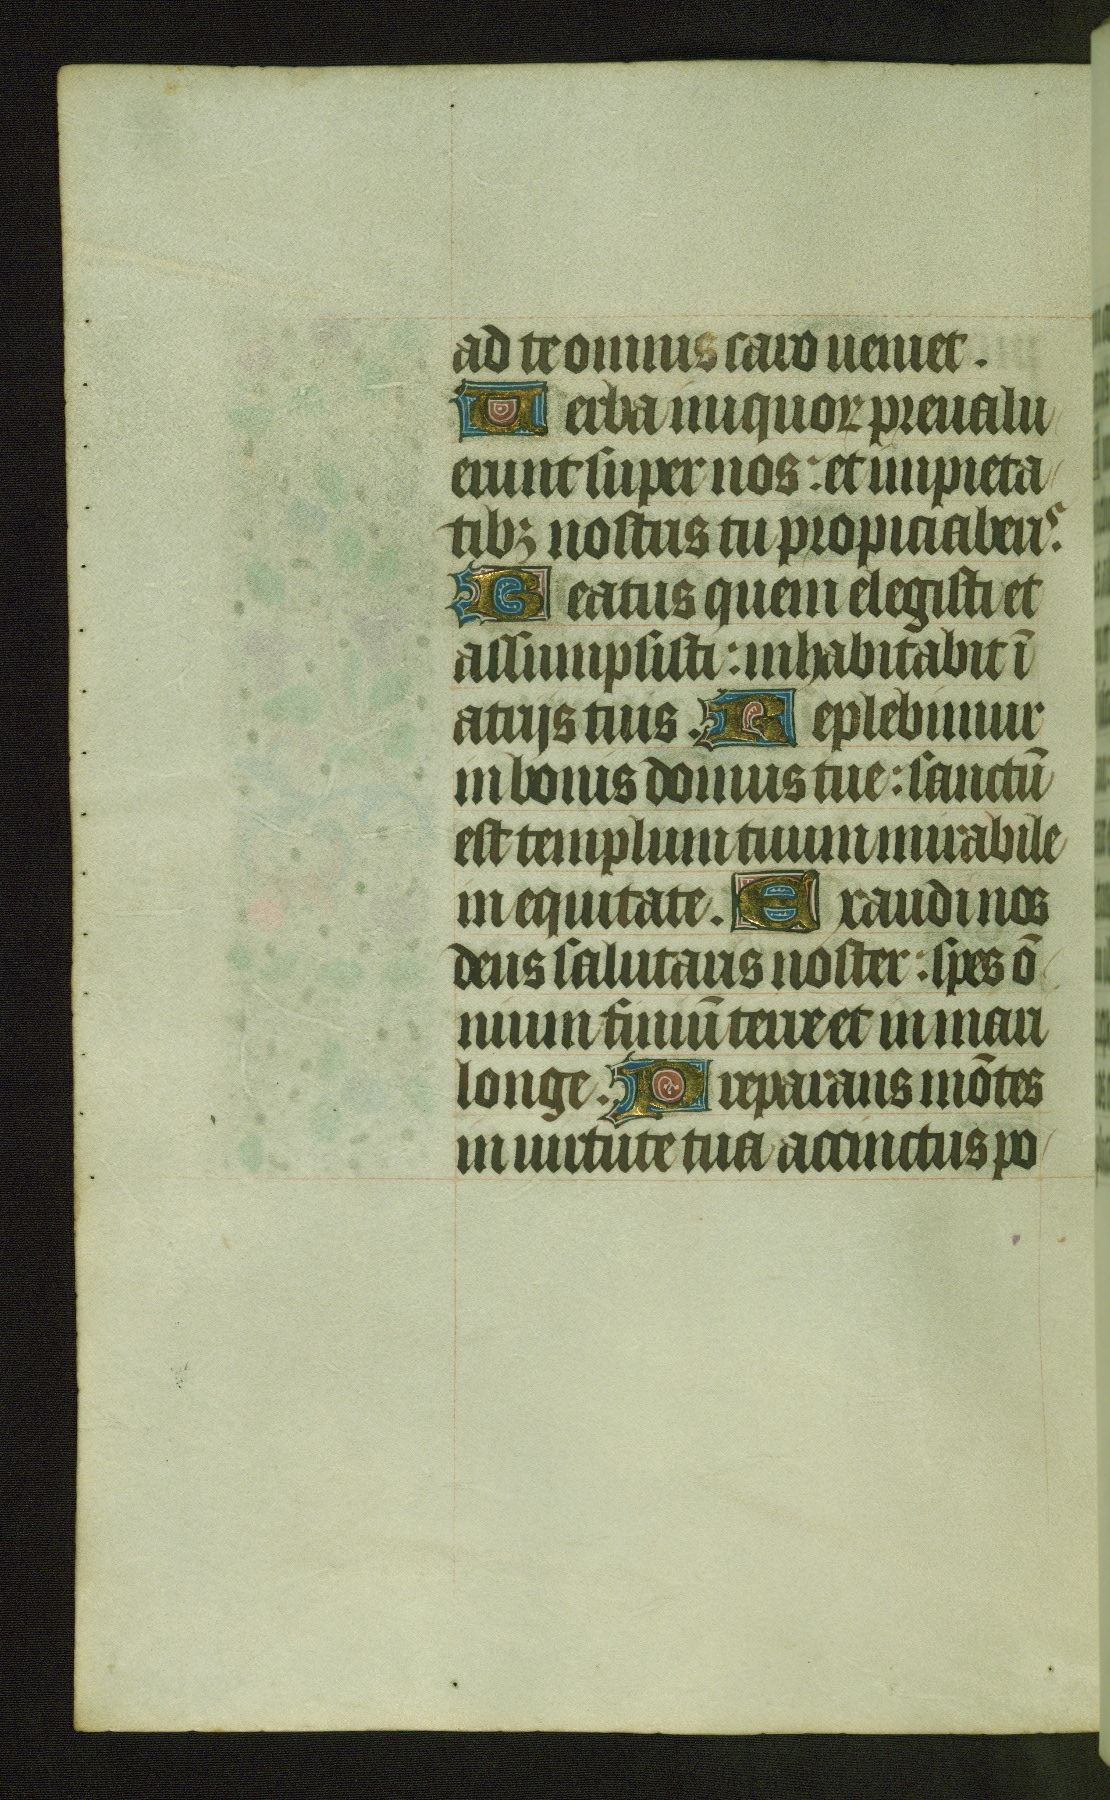 ad te omnis caro ueniet.
Uerba iniquoꝝ preualu
erunt super nos: et impieta
tibꝫ nostris tu propiciaberis.
Beatus quem elegisti et
assumpsisti: inhabitabit ī
atrijs tuis. Replebimur
in bonis domus tue: sanctū
est templum tuum mirabile
in equitate. Exaudi nos
deus salutaris noster: spes ō
nium finiū terre et in mari
longe. Preparans mōtes
in uirtute tua accinctus po